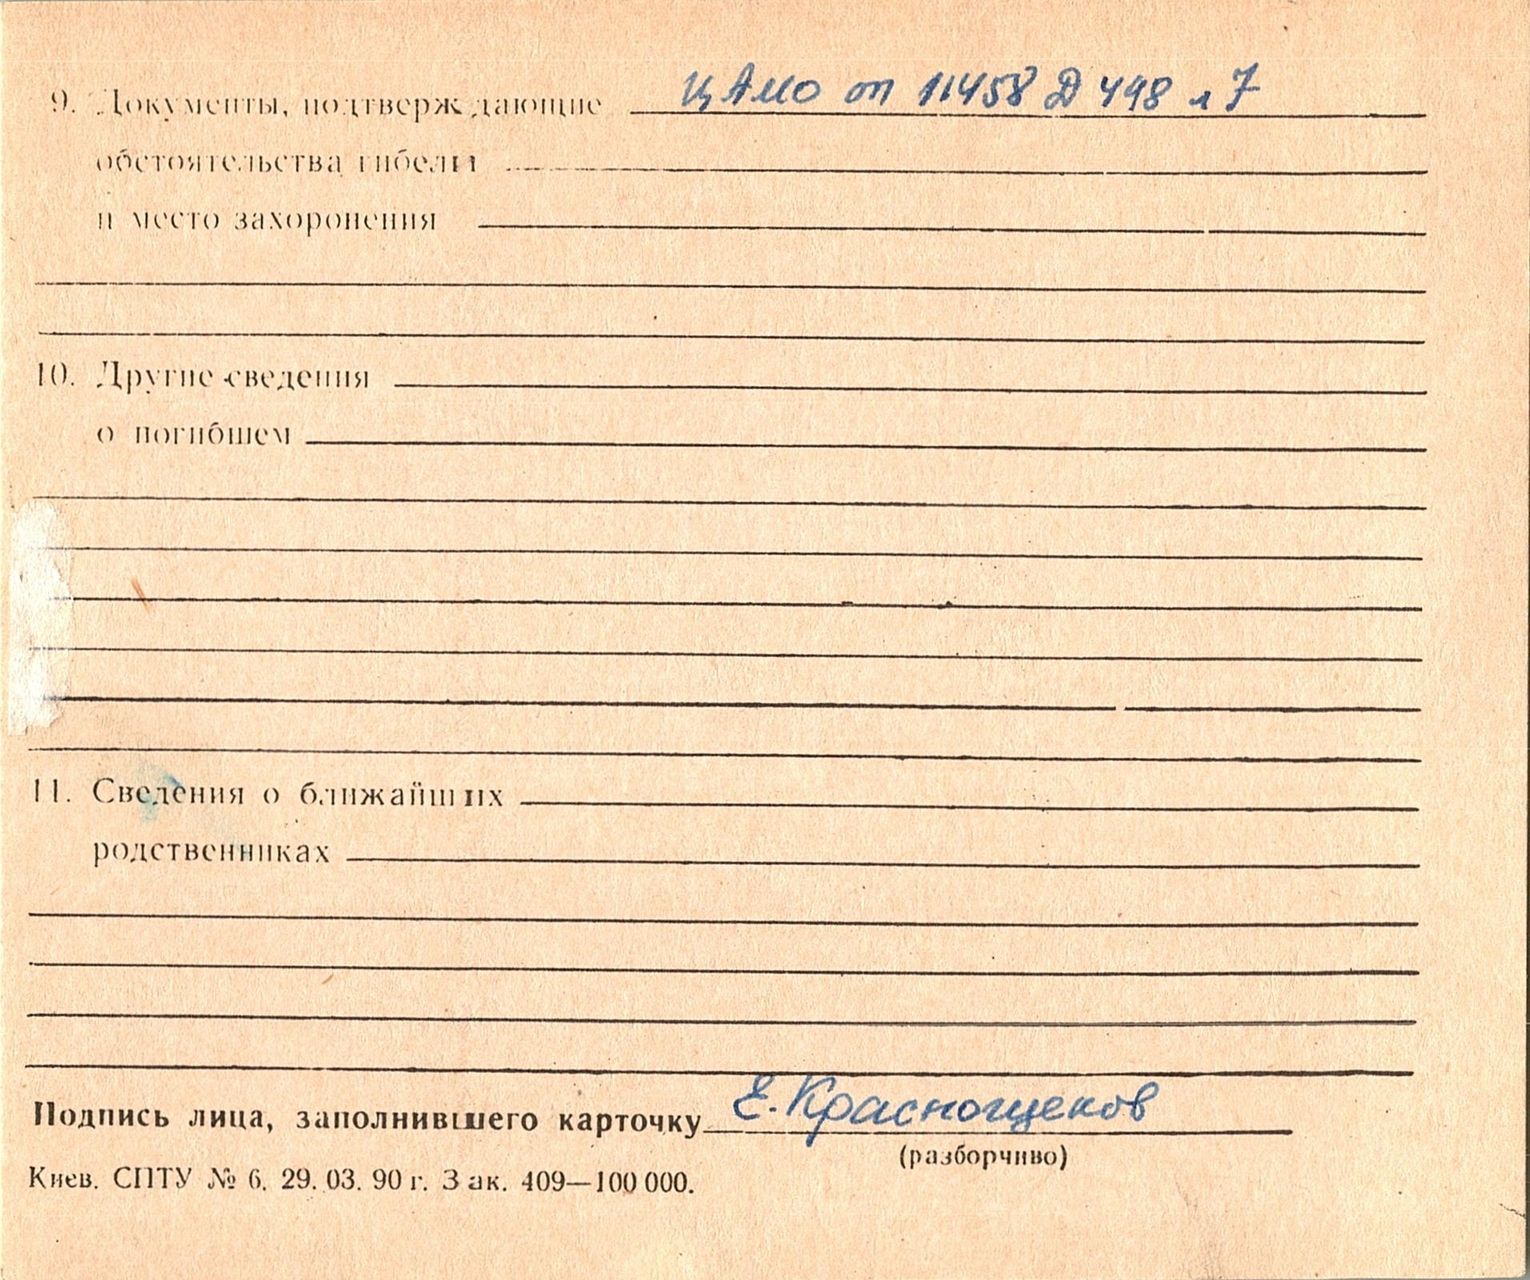 9. Документы, подтверждающие ЦАМО оп 11458 Д 498 л 7
обстоятельства гибели
и место захоронения
10. Другие сведения
о погибшем
11. Сведения о ближайших
родственниках
Подпись лица, заполнившего карточку Е. Краснощеков
(разборчиво)
Киев. СПТУ № 6. 29. 03. 90 г. Зак. 409—100 000.